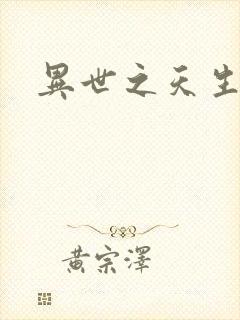 異世之天生
黃宗澤